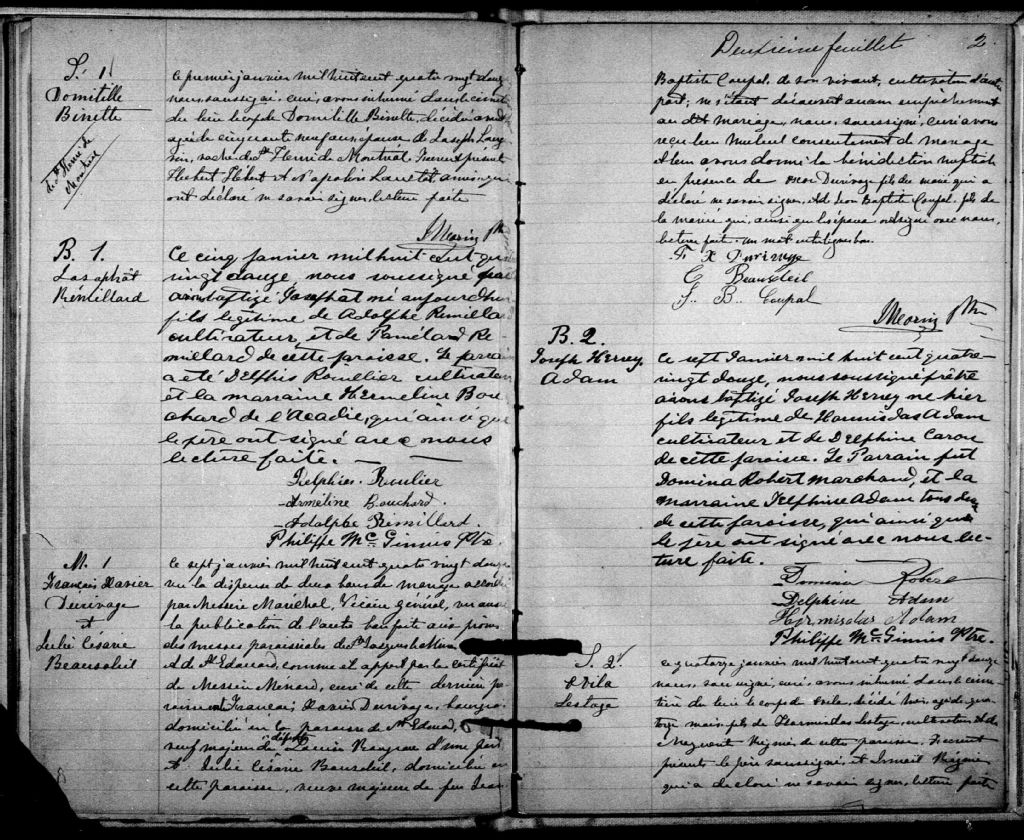 S. 1
Domitille
Binette
de St Henri de
Montréal
Le premier janvier mil huit cent quatre vingt douze
nous, soussigné, curé, avons inhumé dans le cimet
du lieu le corps de Domitille Binette, décédée
agée de cinquante neuf ans, épouse de Joseph
de St Henri de Montréal. Furent présent
Hubert Hébert et Napoléon
ont déclaré ne savoir signer, lecture faite
J Morin Ptr
B. 1.
Josaphat
Rémillard
Ce cinq janvier mil huit cent qu
vingt douze, nous soussigné
avons baptizé Josaphat né aujourd'hui
fils legitime de Adolphe Remilla
cultivateur, et de Paméla Re-
millard de cette paroisse. Le parrain
a été Delphis Roullier cultivateur
et la marraine Hermeline Bou
chard de l'Acadie, qui ainsi que
le père ont signé avec nous
lecture faite.
Delphis Roulier
Arméline Bouchard.
Adolphe Rémillard.
Philippe McGinnis Ptre.
M. 1
François Xavier
Derivage
et
Julie Césarie
Beausoleil
Le sept janvier mil huit cent quatre vingt douze
vu la dispense de deux bans de mariage accordée
par Messire Maréchal, Vicaire général, vu aussi
la publication de l'autre ban faite aux prônes
des messes paroissiales de St Jacques le Mineur
et de St Edouard, comme il appert par le certificat
de Messire Ménard, curé de cette dernière pa
roisse, entre François Xavier Derivage, bourgeois
domicilié en la paroisse de St Edouard,
veuf majeur de défunte Louise d'une part
et Julie Césarie Beausoleil, domiciliée en
cette paroisse, veuve majeure de feu Jean
Deuxième feuillet 2.
Baptiste Coupal, de son vivant, cultivateur d'autre
part; ne s'étant découvert aucun empêchement
au dit mariage, nous, soussigné, curé avons
reçu leur mutuel consentement de mariage
et leur avons donné la bénédiction nuptiale
en présence de Derivage fils du marié qui a
déclaré ne savoir signer, et de Jean Baptiste Coupal, fils de
la mariée qui, ainsi que les époux ont signé avec nous,
lecture faite. un mot interligne bon.
F X Derivage
C Beausoleil
J. B. Coupal
J Morin Ptr
B. 2.
Joseph Hervey
Adam
Ce sept Janvier mil huit cent quatre-
vingt douze, nous soussigné prêtre
avons baptizé Joseph Hervey né hier
fils legitime de Hormisdas Adam
cultivateur et de Delphine Caron
de cette paroisse. Le Parrain fut
Domina Robert marchand, et la
marraine Delphine Adam tous deux
de cette paroisse, qui ainsi que
le père ont signé avec nous lec-
ture faite.
Domina Robert
Delphine Adam
Hormisdas Adam
Philippe McGinnis Ptre.
S. 2
Ovila
Lestage
Le quatorze janvier mil huit cent quatre vingt douze
nous, soussigné, curé, avons inhumé dans le cime-
tière du lieu le corps de Ovila, décédé hier, agé de qua
torze mois, fils de Hermisdas Lestage, cultivateur, et de
de cette paroisse. Furent
présent le père soussigné, et Ismaël
qui a déclaré ne savoir signer, lecture faite